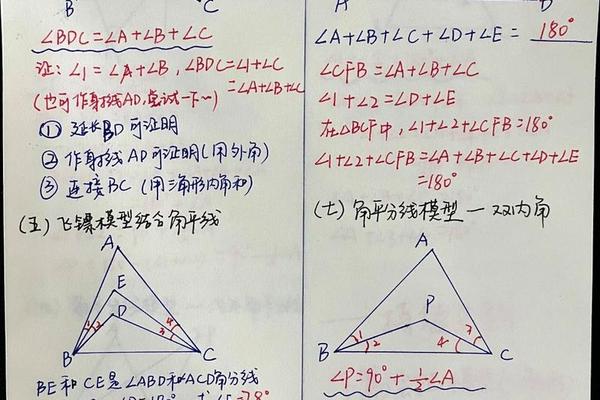 B C
∠BDC=∠A+∠B+∠C
证：∠1=∠A+∠B，∠BDC=∠1+∠C
=∠A+∠B+∠C
(也可作射线AD，尝试一下~)
① 延长BD可证明
② 作射线AD可证明(用外角)
③ 连接BC (用三角形内角和)
(五) 飞镖模型结合角平线
A
E
D
1 2 3 4
B C
BE和CE是∠ABD和∠ACD角分线
A D
∠A+∠B+∠C+∠D+∠E= 180°
∠CFB=∠A+∠B+∠C
∠1+∠2=∠D+∠E
在△BCF中，∠1+∠2+∠CFB=180°
∠1+∠2+∠CFB=∠A+∠B+∠C+∠D+∠E
=180°
(七) 角平分线模型一双内角
A
P
1 2 3 4
B C
∠P=90°+½∠A